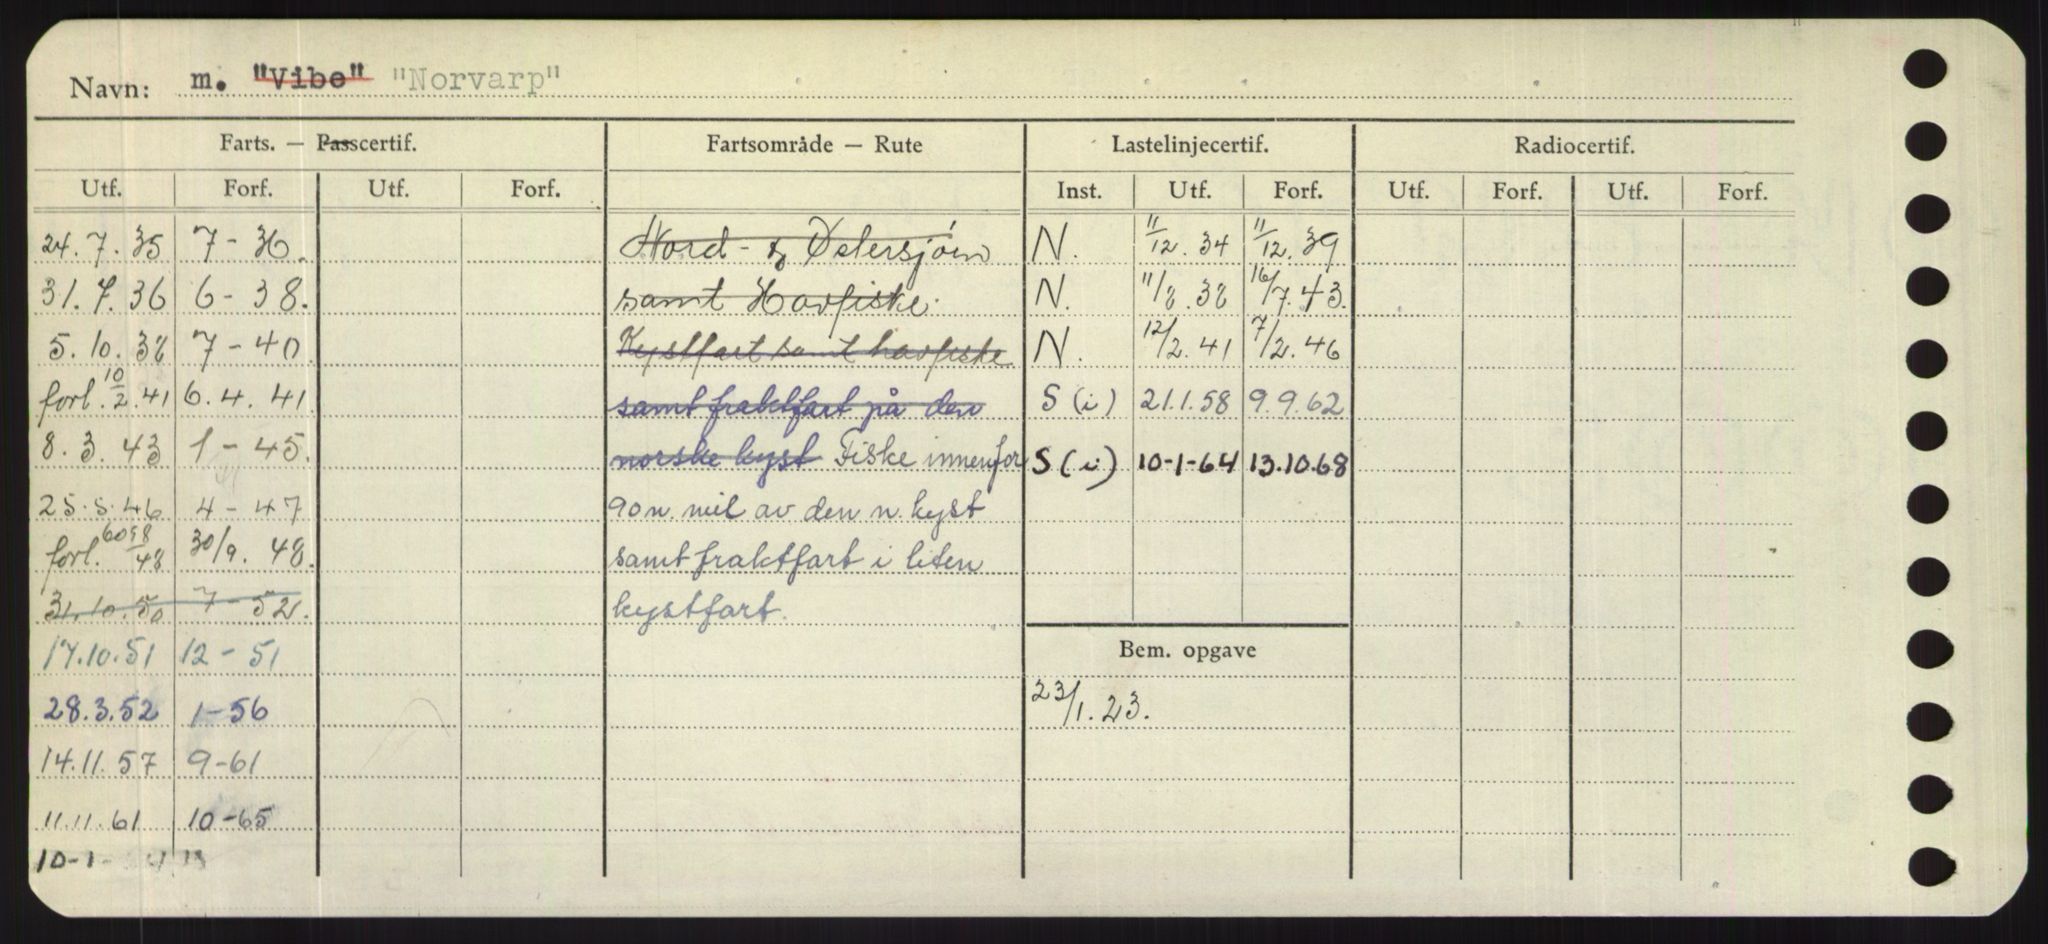 Navn: m. "Vibe" "Norvarp"
Farts. — Passcertif. Fartsområde — Rute Lastelinjecertif. Radiocertif.
Utf. Forf. Utf. Forf. Inst. Utf. Forf. Utf. Forf. Utf. Forf.
24.7.35 7-36. Nord- & Østersjøen N. 11/12.34 11/12.39
31.7.36 6-38. samt Havfiske. N. 11/8.38 16/7.43.
5.10.38 7-40 Kystfart samt havfiske N. 12/2.41 7/2.46
forl. 10/2.41 6.4.41 samt fraktfart på den S (i) 21.1.58 9.9.62
8.3.43 1-45. norske kyst Fiske innenfor S (i) 10-1-64 13.10.68
25.5.46 4-47 90 n. mil av den n. kyst
forl. 48 30/9.48. samt fraktfart i liten
31.10.50 7-52. kystfart.
17.10.51 12-51 Bem. opgave
28.3.52 1-56 23/1.23.
14.11.57 9-61
11.11.61 10-65
10-1-